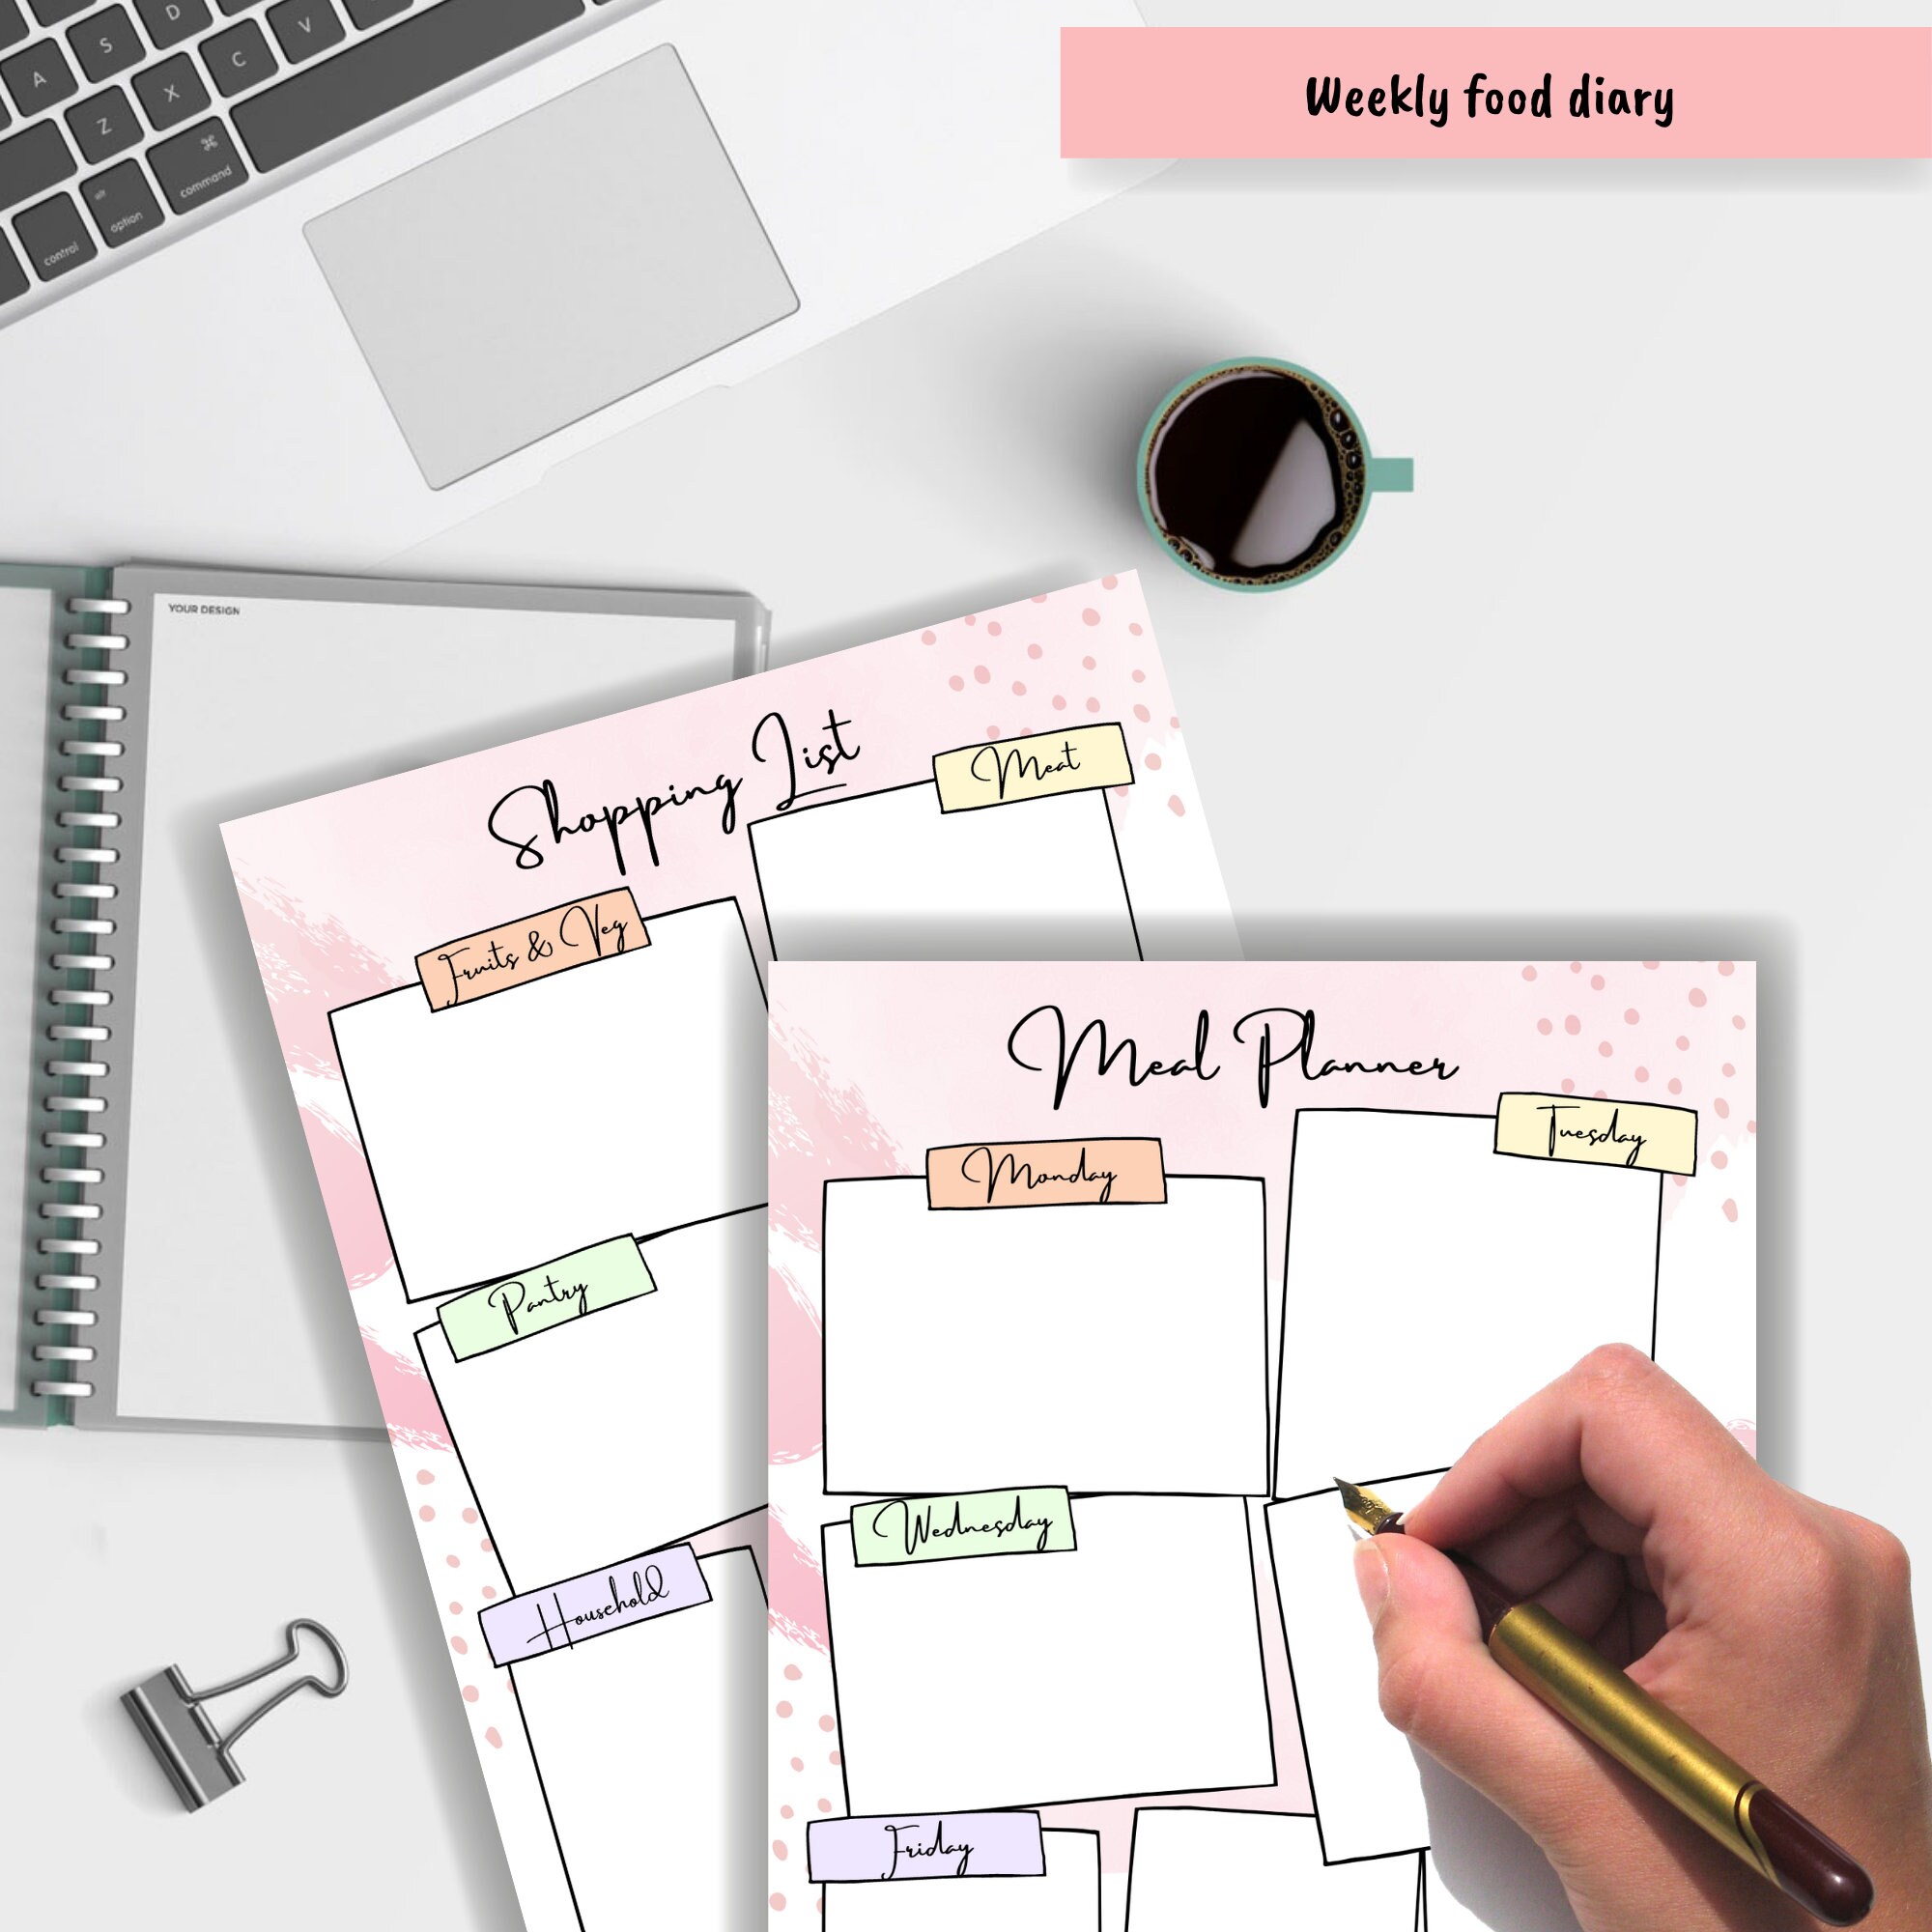 D
A S
V
C
X
Z
⌘
command
alt
option
control
Weekly food diary
YOUR DESIGN
Shopping List
Meat
Fruits & Veg
Pantry
Household
Meal Planner
Monday
Tuesday
Wednesday
Friday